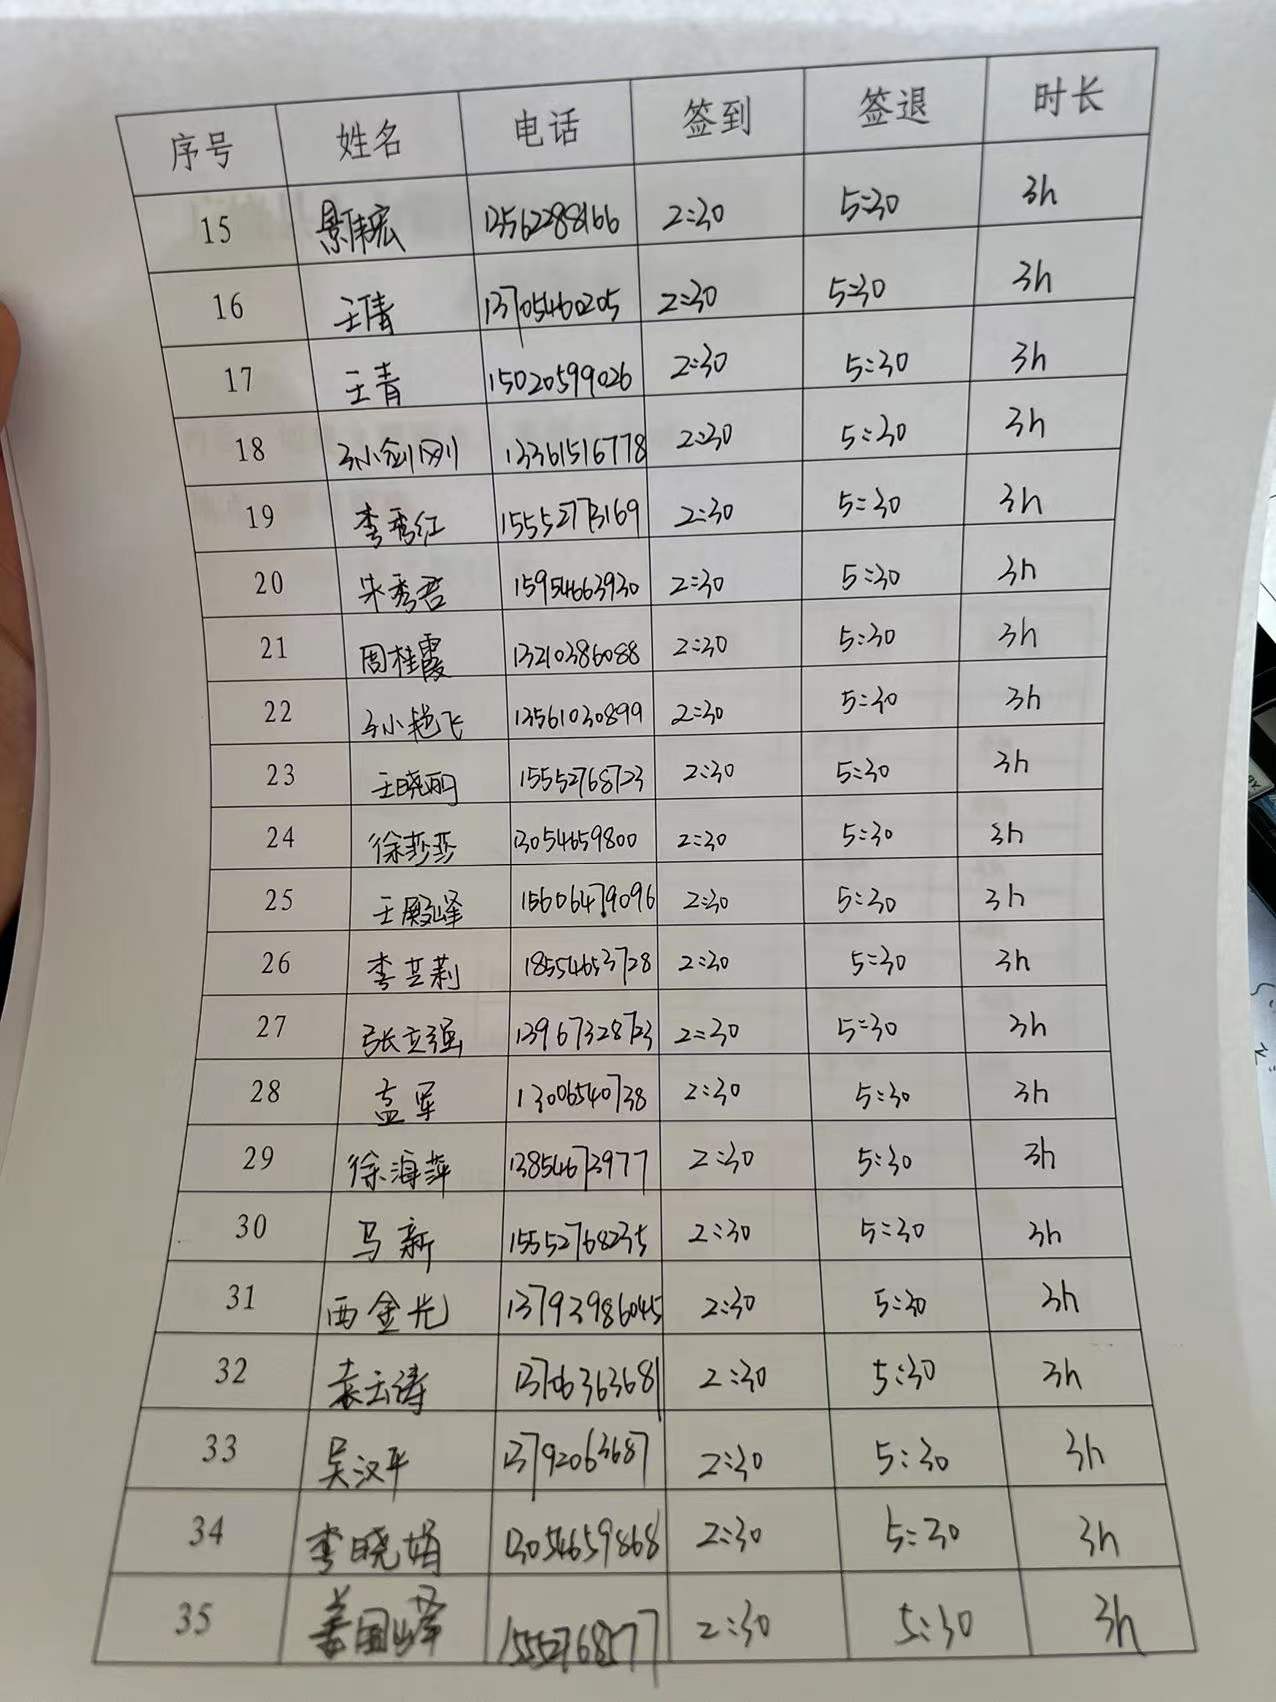 序号 姓名 电话 签到 签退 时长
15 景伟宏 13562288166 2:30 5:30 3h
16 王倩 13705460205 2:30 5:30 3h
17 王青 15020599026 2:30 5:30 3h
18 孙剑刚 13361516778 2:30 5:30 3h
19 李秀红 15552773169 2:30 5:30 3h
20 朱秀君 15954663930 2:30 5:30 3h
21 周桂霞 13210386088 2:30 5:30 3h
22 孙艳飞 13561030899 2:30 5:30 3h
23 王晓丽 15552768723 2:30 5:30 3h
24 徐莎莎 13054659800 2:30 5:30 3h
25 王殿峰 15606479096 2:30 5:30 3h
26 李芝莉 18554653728 2:30 5:30 3h
27 张立强 13967328723 2:30 5:30 3h
28 孟军 13006540738 2:30 5:30 3h
29 徐海萍 13854673977 2:30 5:30 3h
30 马新 15552768235 2:30 5:30 3h
31 西金光 13793986045 2:30 5:30 3h
32 袁云涛 13706363681 2:30 5:30 3h
33 吴汉平 13792063687 2:30 5:30 3h
34 李晓娟 13054659868 2:30 5:30 3h
35 姜国峰 15552768577 2:30 5:30 3h